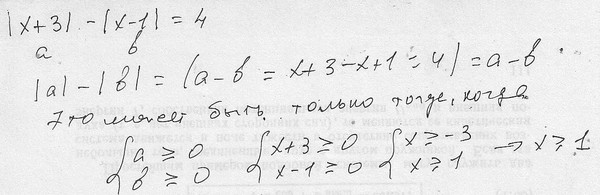 |x+3| - |x-1| = 4
a b
|a| - |b| = (a-b = x+3-x+1 = 4) = a-b
Это может быть только тогда, когда
{a ≥ 0 {x+3 ≥ 0 {x ≥ -3 → x ≥ 1
{b ≥ 0 {x-1 ≥ 0 {x ≥ 1